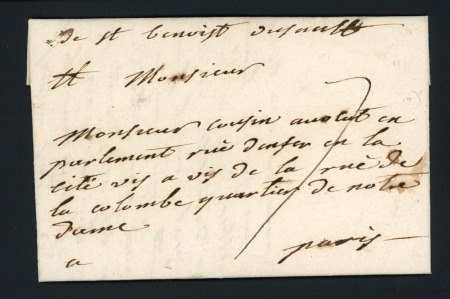 de st benoist dusault
A Monsieur
Monsieur cousin avocat en
parlement ruë denfer en la
cité vis a vis de la ruë de
la colombe quartier de notre
dame
a paris
7